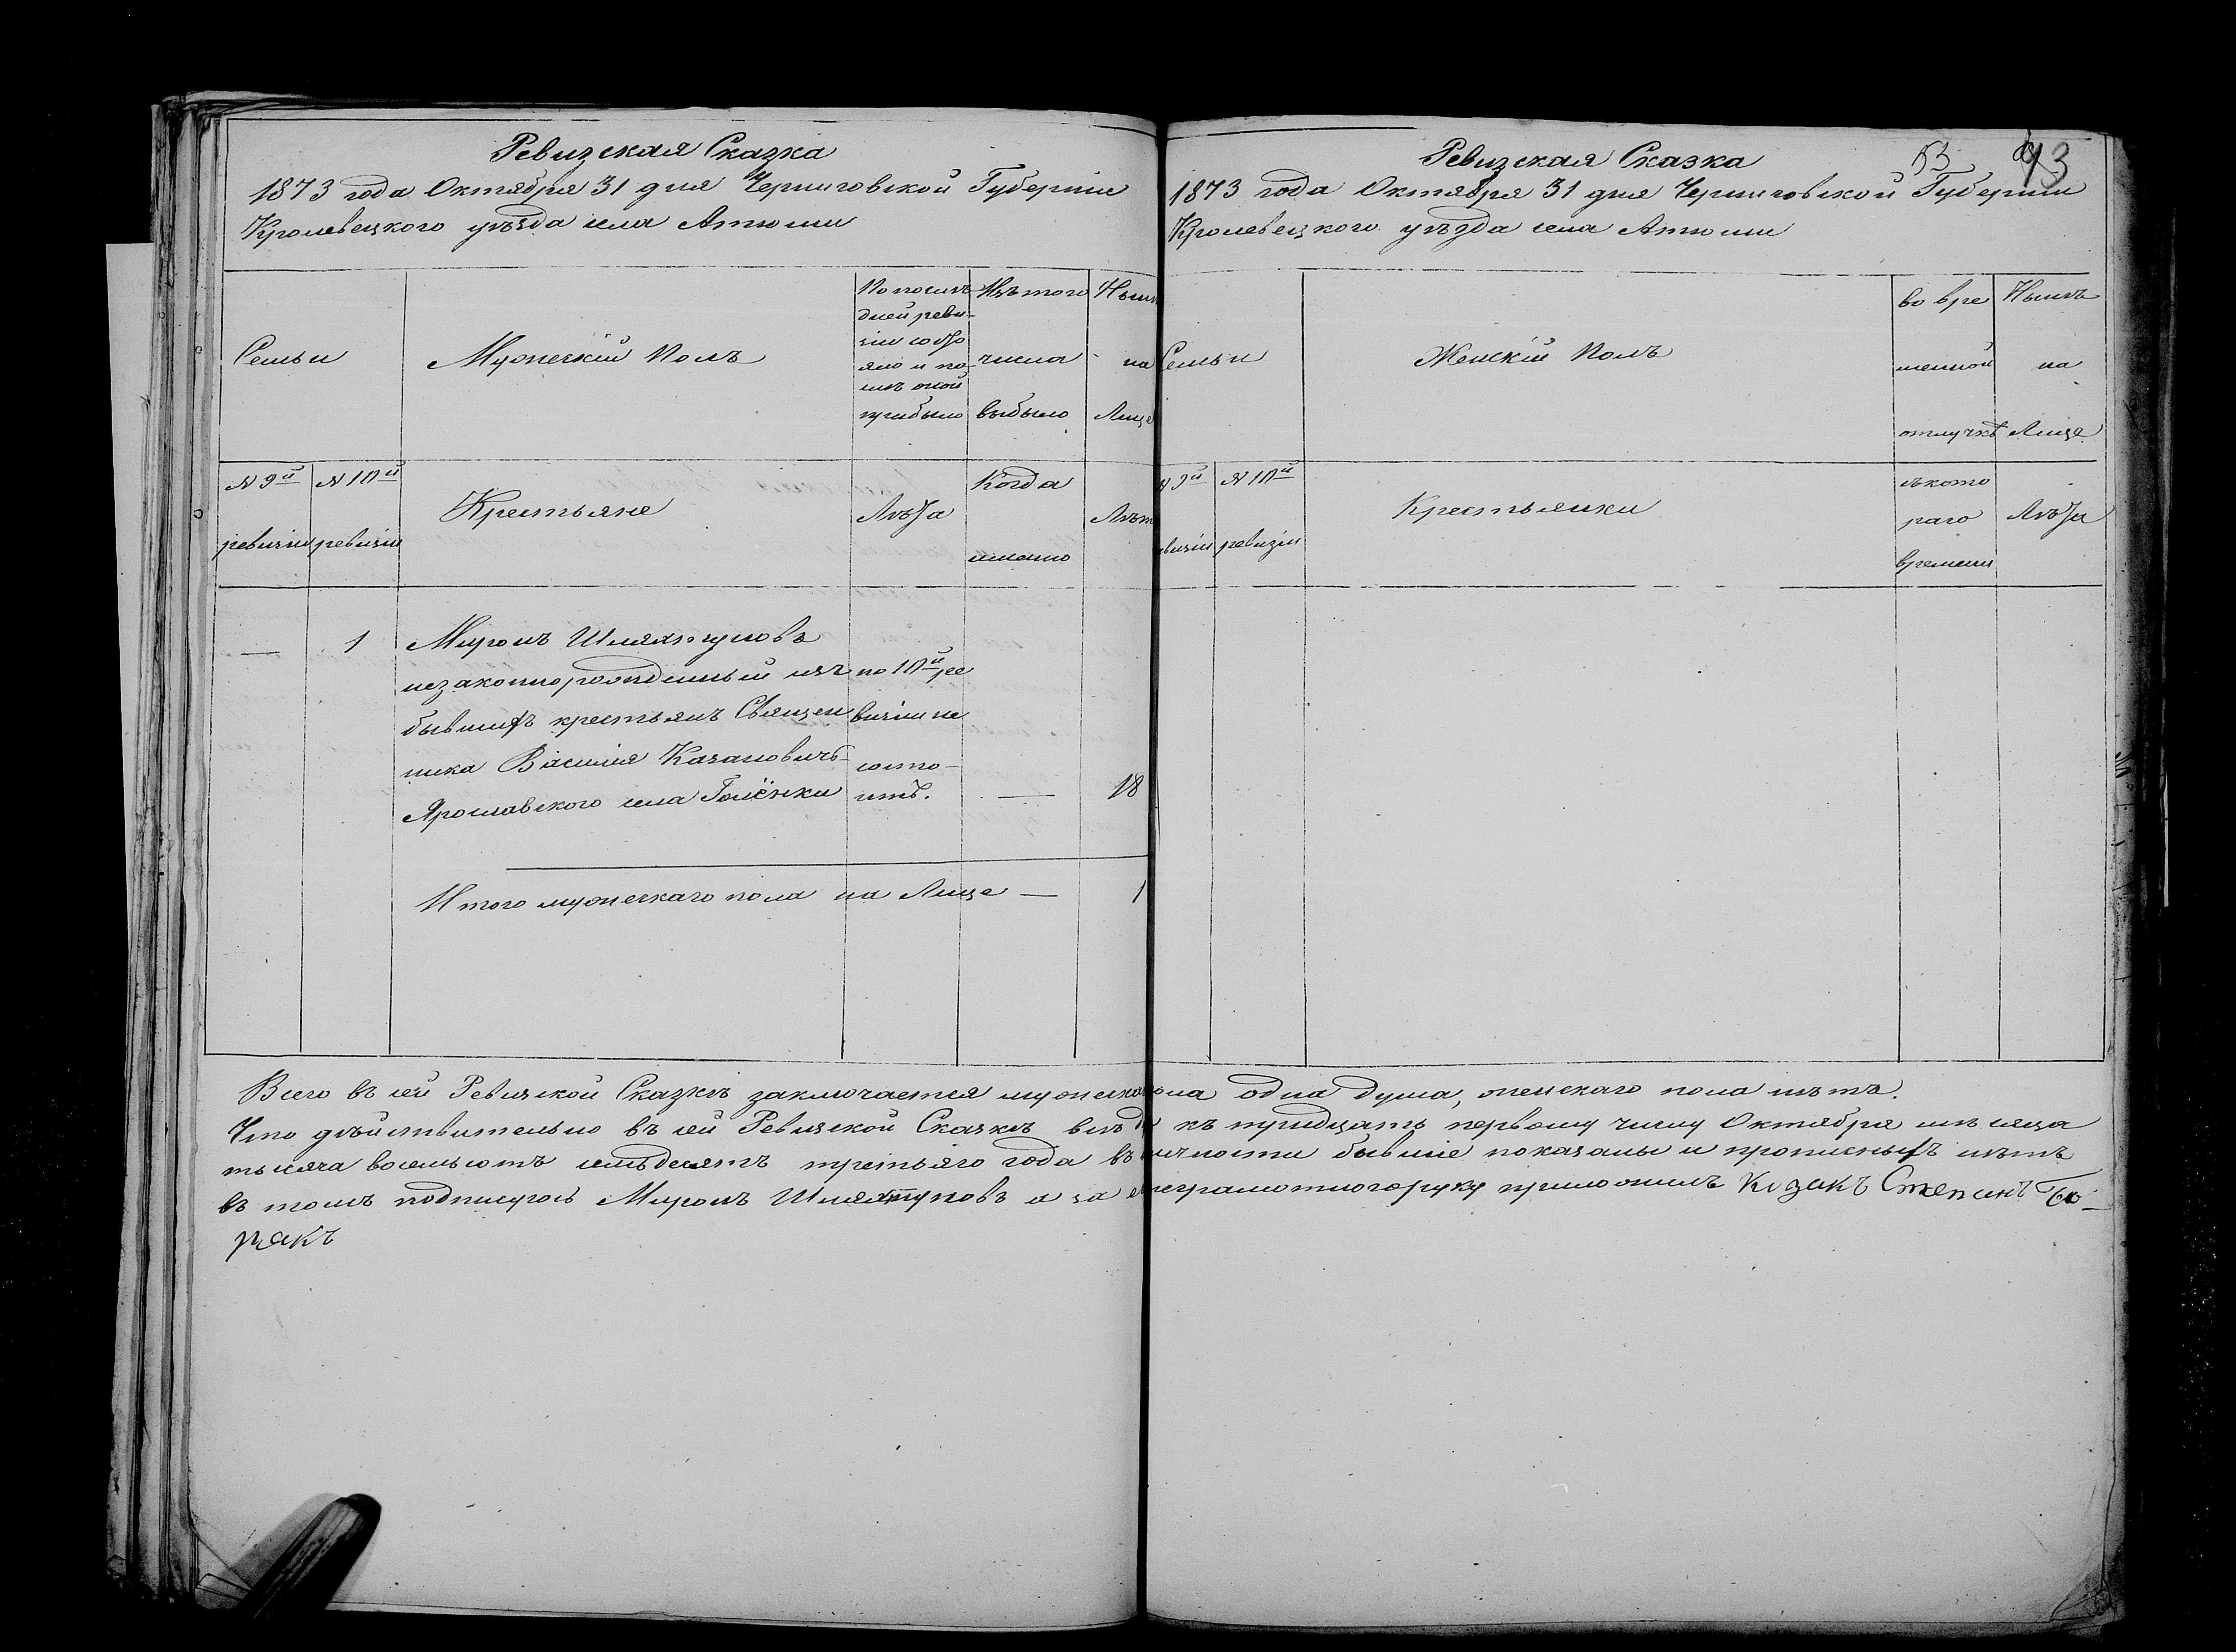 Ревизская Сказка
1873 года Октября 31 дня Черниговской Губерніи
Кролевецкого уѣзда села Атюши
Семьи
Мужескій Полъ
По послѣ-
дней реви-
зіи состо
яло и по-
слѣ оной
прибыло
Изъ того
числа
выбыло
Нынѣ
на
Лице
N 9й
ревизіи
N 10й
ревизіи
Крестьяне
Лѣта
Когда
имянно
Лѣт
—
1
Миронъ
незаконнорожденный изъ
бывшихъ крестьянъ Священ
ника Василія Казановичъ-
Ярославского села
по 10й ре
визіи не
состо-
итъ.
—
18
Итого мужескаго пола на Лице —
1
Ревизская Сказка
53
93
1873 года Октября 31 дня Черниговской Губерніи
Кролевецкого уѣзда села Атюши
Семьи
Женскій Полъ
во вре
менной
отлучкѣ
Нынѣ
на
Лице
N 9й
евизіи
N 10й
ревизіи
Крестьянки
съ кото
раго
времени
Лѣта
Всего въ сей Ревизской Сказкѣ заключается мужеска пола одна душа, женскаго пола нѣтъ.
Что дѣйствительно въ сей Ревизской Сказкѣ всѣ къ тридцать первому числу Октября мѣсяца
тысяча восемьсотъ семьдесятъ третьяго года въ личности бывшіе показаны и прописныхъ нѣтъ
въ томъ подписуюсь Миронъ а за неграмотного руку приложилъ Козакъ Степанъ